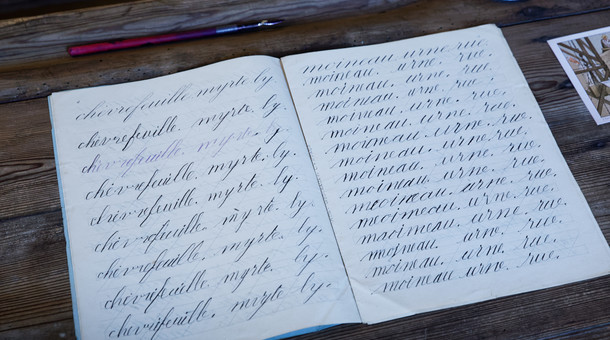 chèvrefeuille myrte by.
chèvrefeuille. myrte. by.
chèvrefeuille. myrte. by.
chèvrefeuille. myrte. by.
chèvrefeuille. myrte. by.
chèvrefeuille. myrte. by.
chèvrefeuille. myrte. by.
chèvrefeuille. myrte. by.
chèvrefeuille. myrte by.
moineau urne rue.
moineau. urne. rue.
moineau. urne. rue.
moineau. urne. rue.
moineau. urne. rue.
moineau. urne. rue.
moineau. urne. rue.
moineau. urne. rue.
moineau. urne. rue.
moineau. urne. rue.
moineau. urne. rue.
moineau. urne. rue.
moineau. urne. rue.
moineau. urne. rue.
moineau. urne. rue.
moineau. urne. rue.